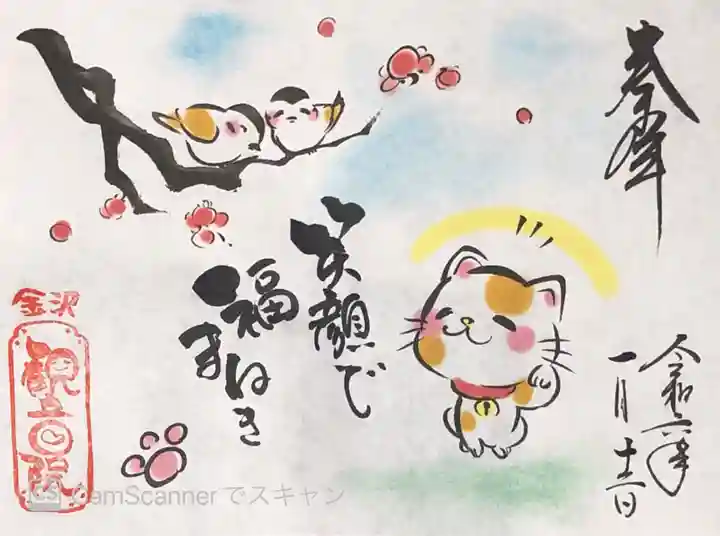 奉拝
令和六年
一月
笑顔で
福まねき
金沢
観音院
CS CamScanner でスキャン